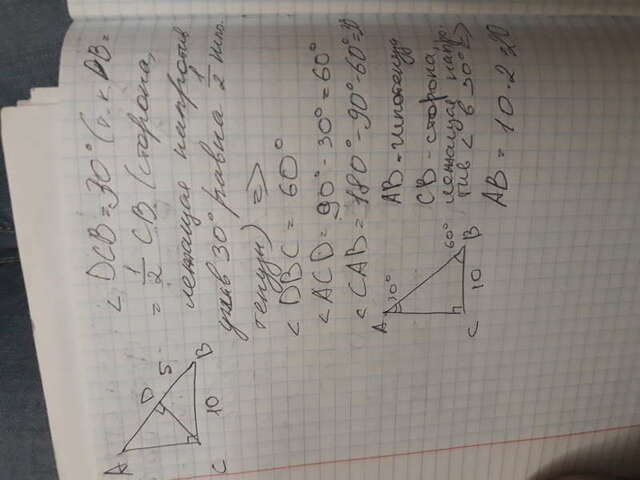 A
D
5
B
10
C
< DCB = 30° (т.к. DB =
= 1/2 CB (сторона,
лежащая напротив
угла в 30° равна 1/2 гипо-
тенузы) =>
< DBC = 60°
< ACD = 90° - 30° = 60°
< CAB = 180° - 90° - 60° = 30
A
30°
60°
B
10
C
AB - гипотенуза
CB - сторона,
лежащая напро-
тив < в 30° =>
AB = 10 · 2 = 20